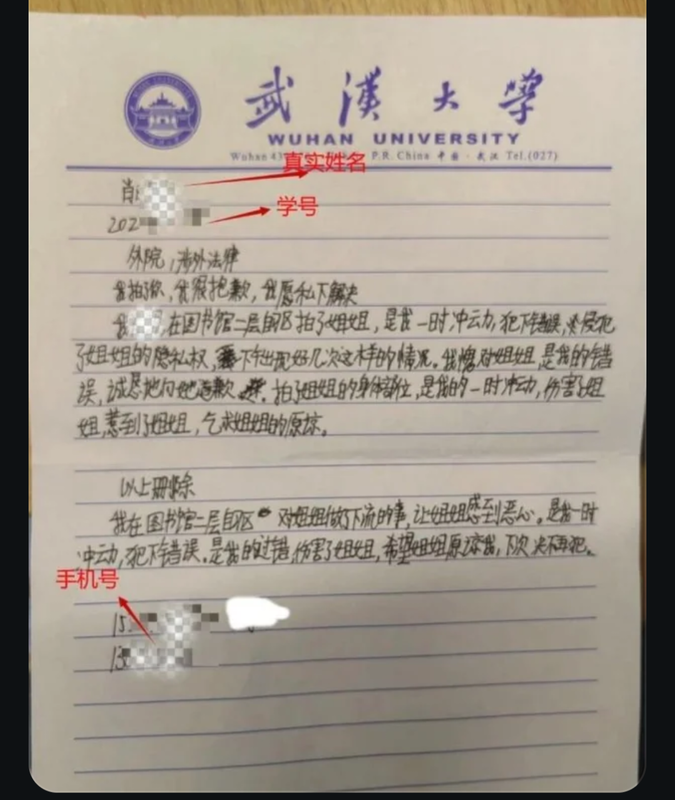 武漢大学
WUHAN UNIVERSITY
Wuhan 43 P.R. China 中国·武汉 Tel.(027)
真实姓名
肖
学号
202
外院,涉外法律
我拍你,我很抱歉,我愿私下解决
我 在图书馆二层自区拍了姐姐,是我一时冲动,犯下错误,侵犯
了姐姐的隐私权,下出现好几次这样的情况。我愧对姐姐,是我的错
误,诚恳地向她道歉。拍了姐姐的身体部位,是我的一时冲动,伤害了姐
姐,惹到了姐姐,乞求姐姐的原谅。
以上删除
我在图书馆二层自区 对姐姐做了下流的事,让姐姐感到恶心。是我一时
冲动,犯下错误。是我的过错,伤害了姐姐,希望姐姐原谅我,下次决不再犯。
手机号
15
13